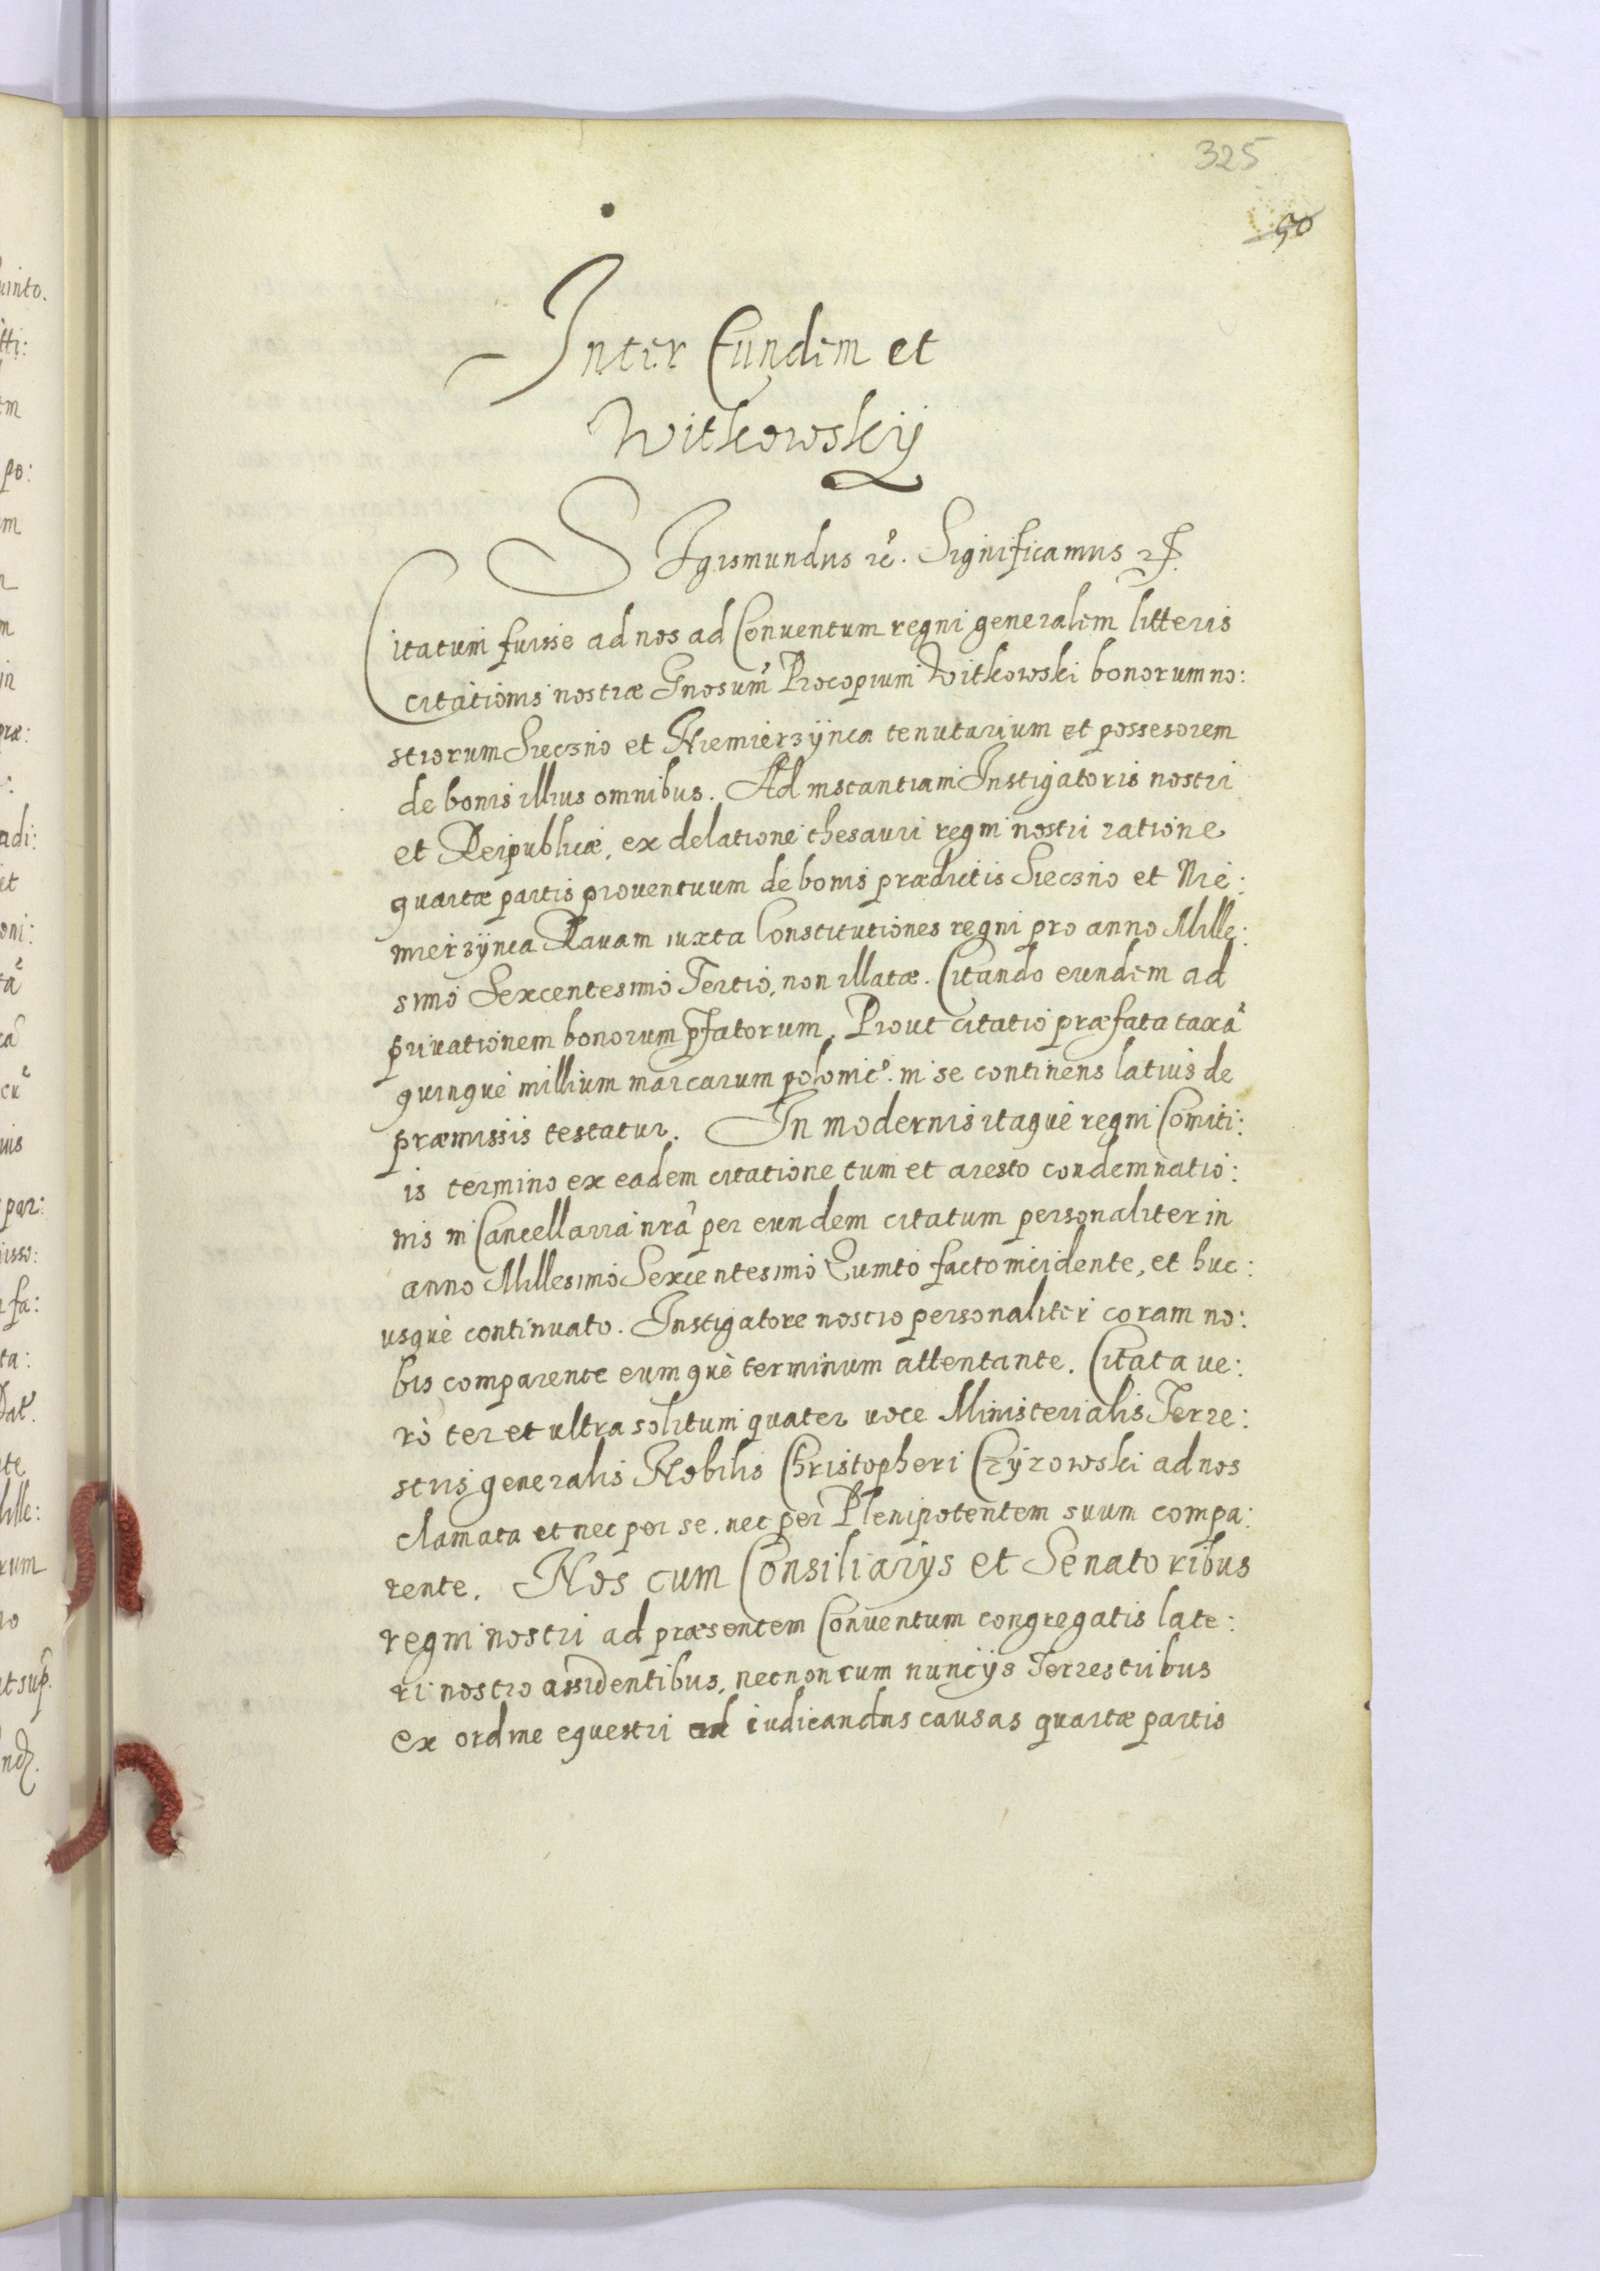 325
90
Inter Eundem et
Witkowskÿ
SIgismundus ꝛc̓. Significamus ꝛꝭ.
Citatum fuisse ad nos ad Conuentum regni generalem litteris
citationis nostræ Gnosum̃ Procopium Witkowski bonorum no:
strorum Sieczno et Niemierzÿnca tenutarium et possesorem
de bonis illius omnibus. Ad instantiam Instigatoris nostri
et Reipublicæ, ex delatione thesauri regni nostri ratione
quartæ partis prouentuum de bonis prædictis Sieczno et Nie:
mierzÿnca Rauam iuxta Constitutiones regni pro anno Mille:
simo Sexcentesimo Tertio, non illatæ. Citando eundem ad
priuationem bonorum pfatorum, Prout citatio præfata taxã
quinque millium marcarum polonic̓. in se continens latius de
præmissis testatur. In modernis itaque regni Comiti:
is termino ex eadem citatione tum et aresto condemnatio:
nis in Cancellaria nrã per eundem citatum personaliter in
anno Millesimo Sexcentesimo Quinto facto incidente, et huc:
usque continuato. Instigatore nostro personaliter coram no:
bis comparente eumque terminum attentante. Citata ue:
rò ter et ultra solitum quater uoce Ministerialis Terre:
stris generalis Nobilis Christopheri Czÿrowski ad nos
clamata et nec per se, nec per Plenipotentem suum compa:
rente. Nos cum Consiliarÿs et Senatoribus
regni nostri ad præsentem Conuentum congregatis late:
ri nostro assidentibus, necnon cum nuncÿs Terrestribus
ex ordine equestri ad iudicandus causas quartæ partis